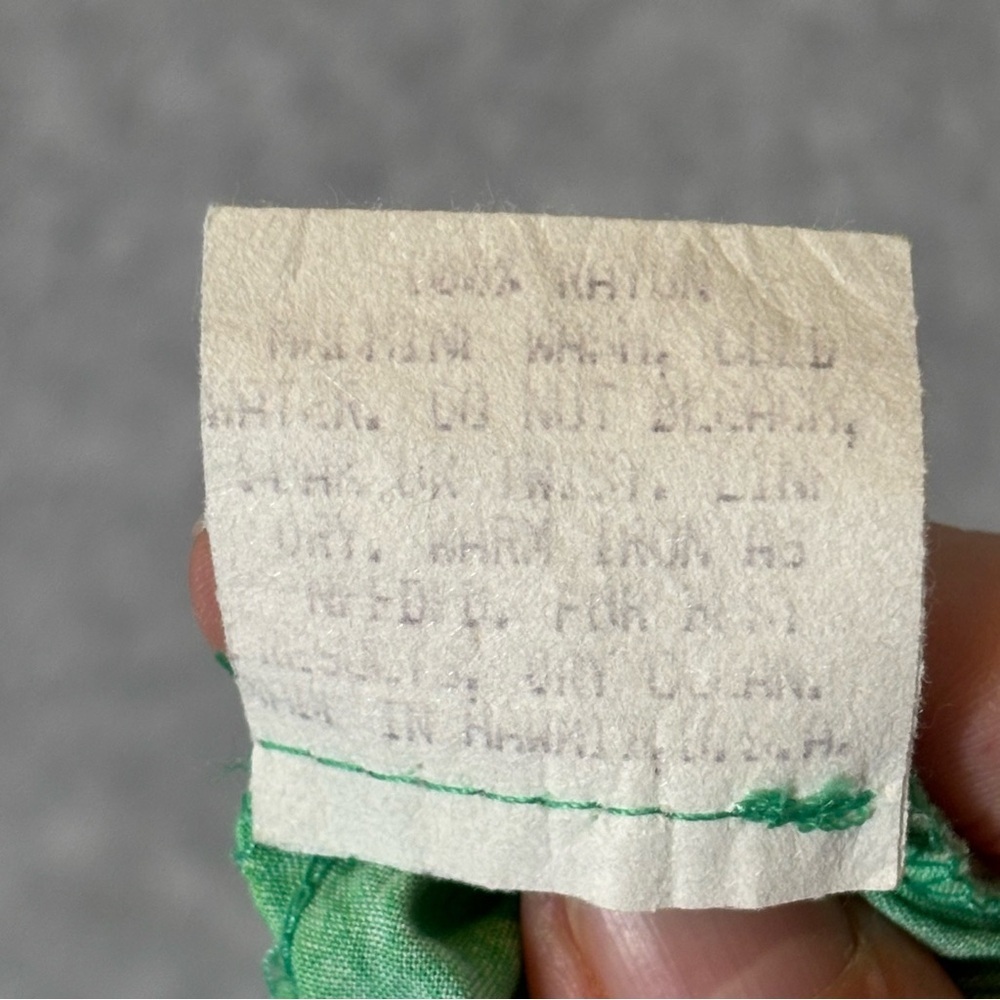 100% RAYON
MACHINE WASH, COLD
WATER. DO NOT BLEACH,
OR TWIST. LINE
DRY. WARM IRON AS
NEEDED. FOR BEST
RESULTS, DRY CLEAN.
MADE IN HAWAII, U.S.A.